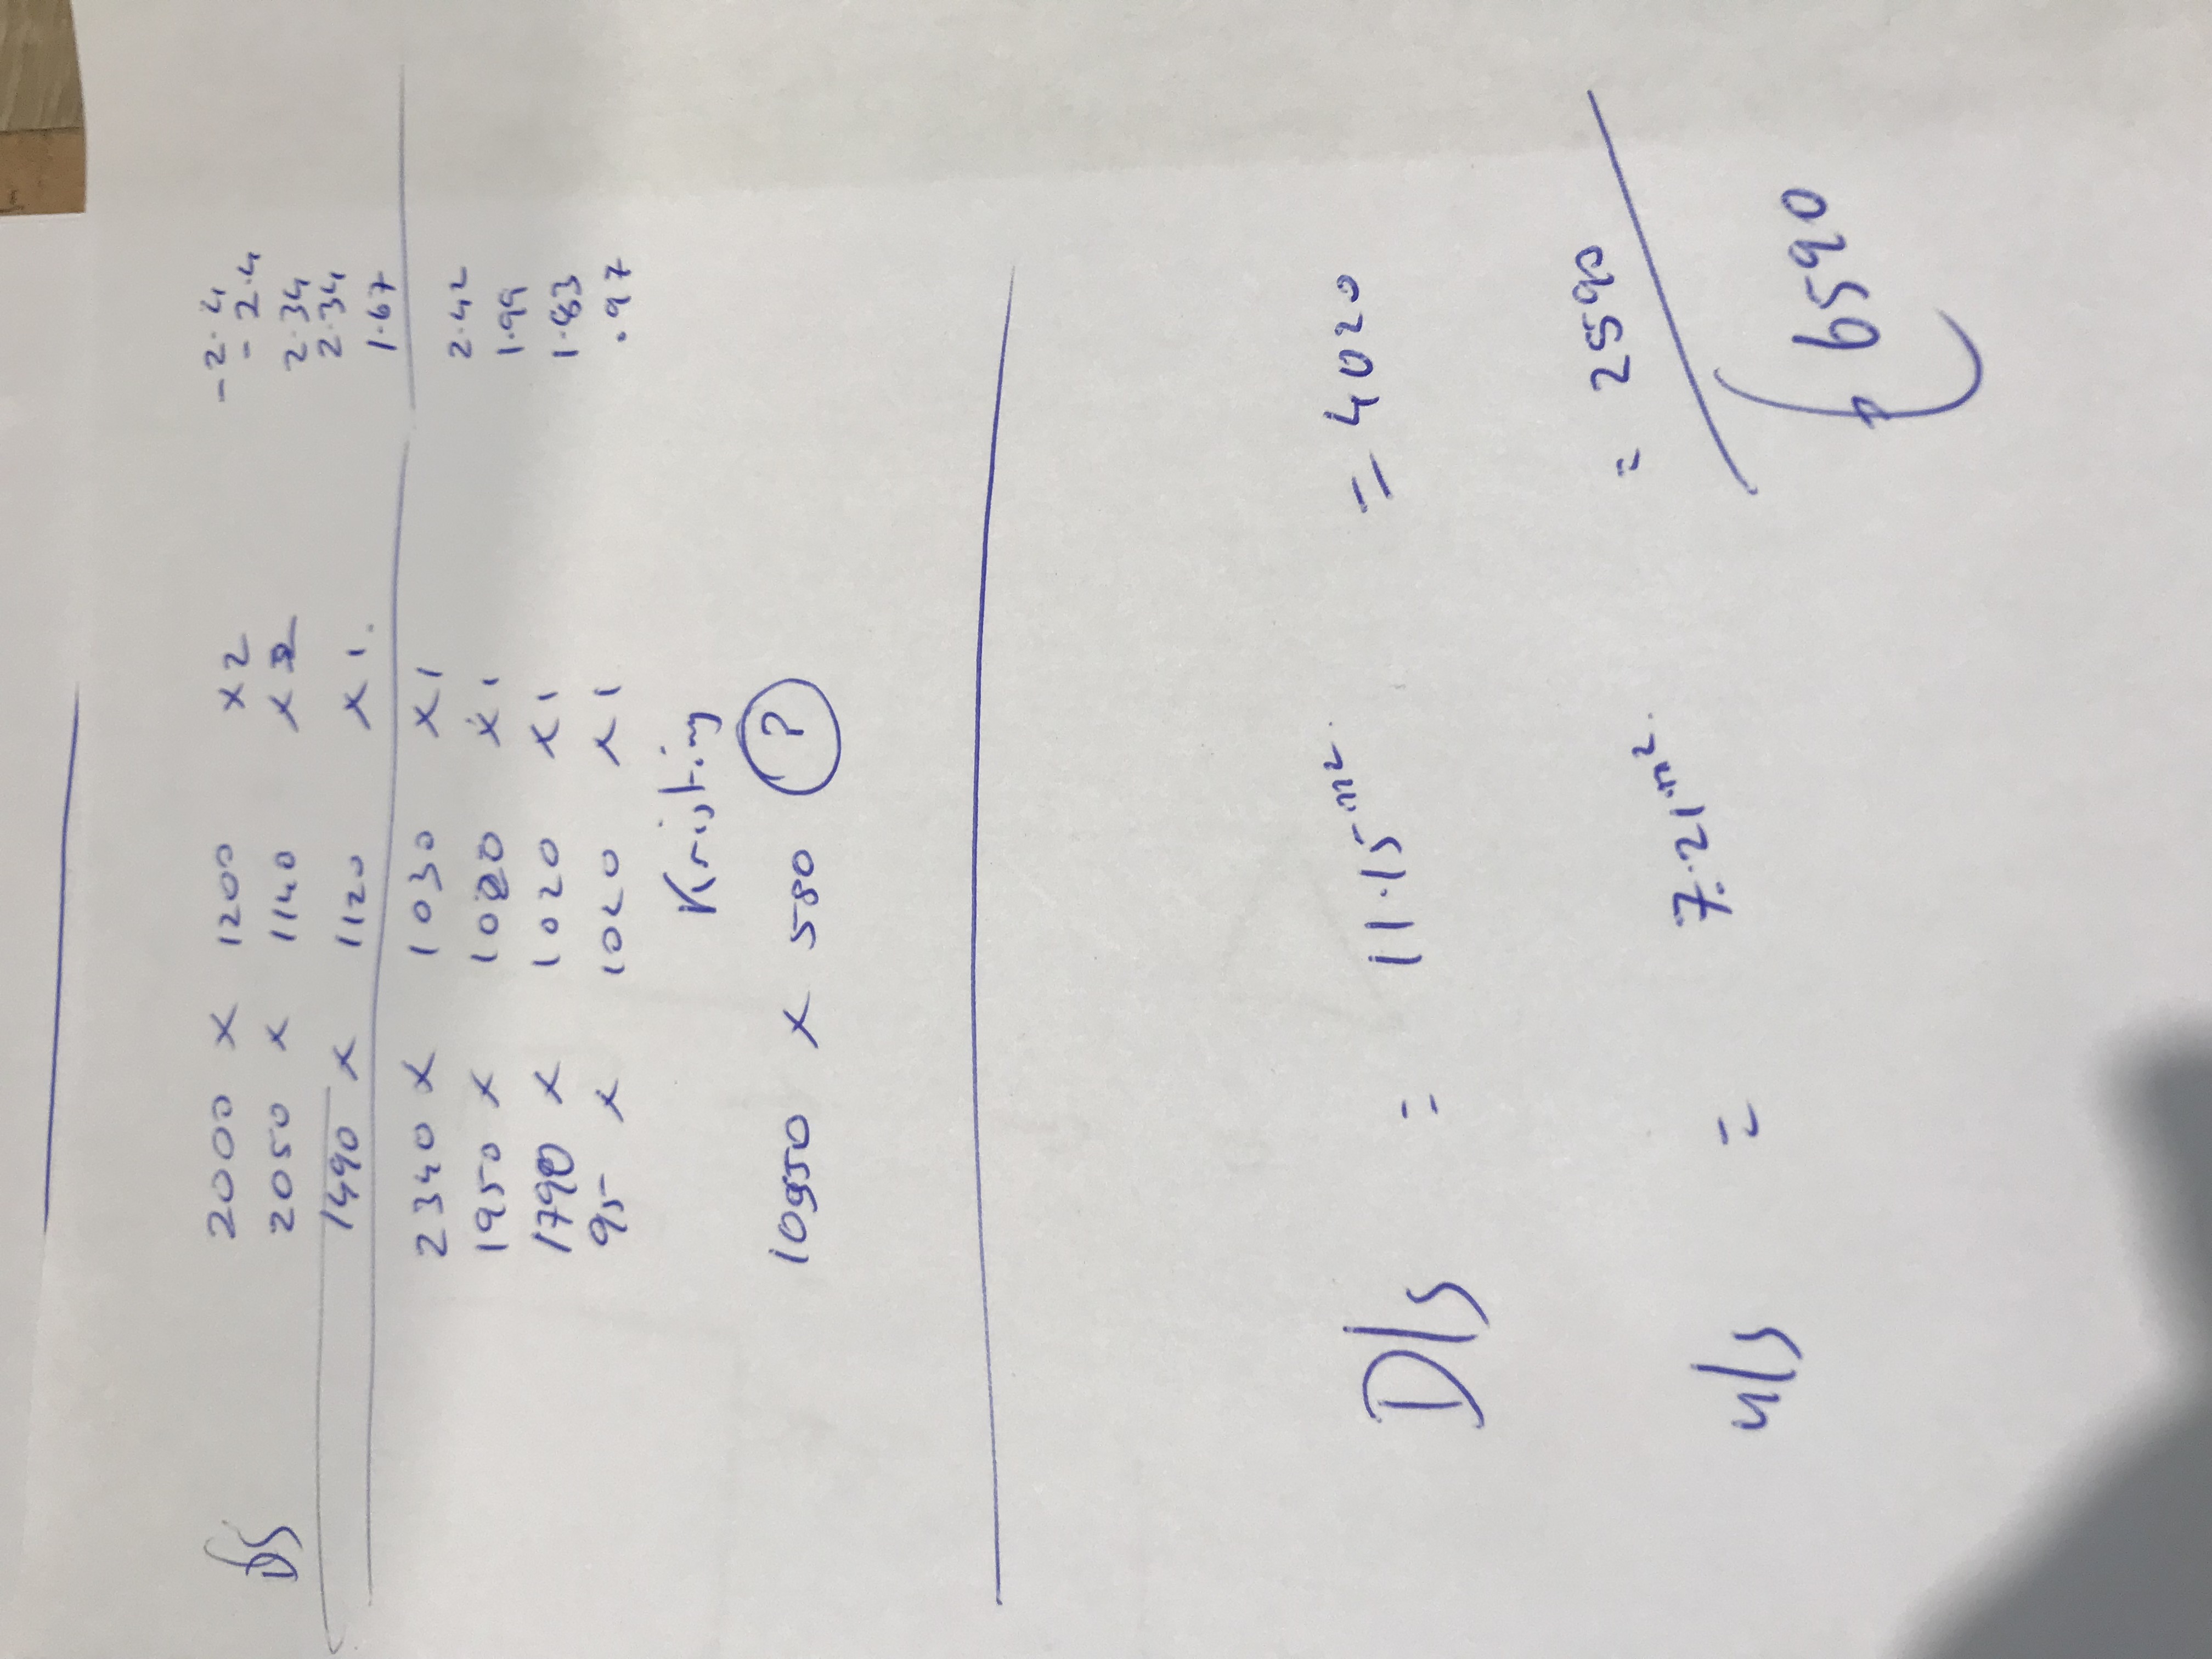 D/S 2000 x 1200 x2 - 2.4
2050 x 1140 x 2 - 2.4
2.34
2.34
1490 x 1120 x 1. 1.67
2340 x 1030 x 1 2.42
1950 x 1020 x 1 1.99
1790 x 1020 x 1 1.83
95 x 1020 x 1 .97
Kristing
10950 x 580 ?
D/S = 11.15m2 = 4020
u/s = 7.21m2. = 2590
6590